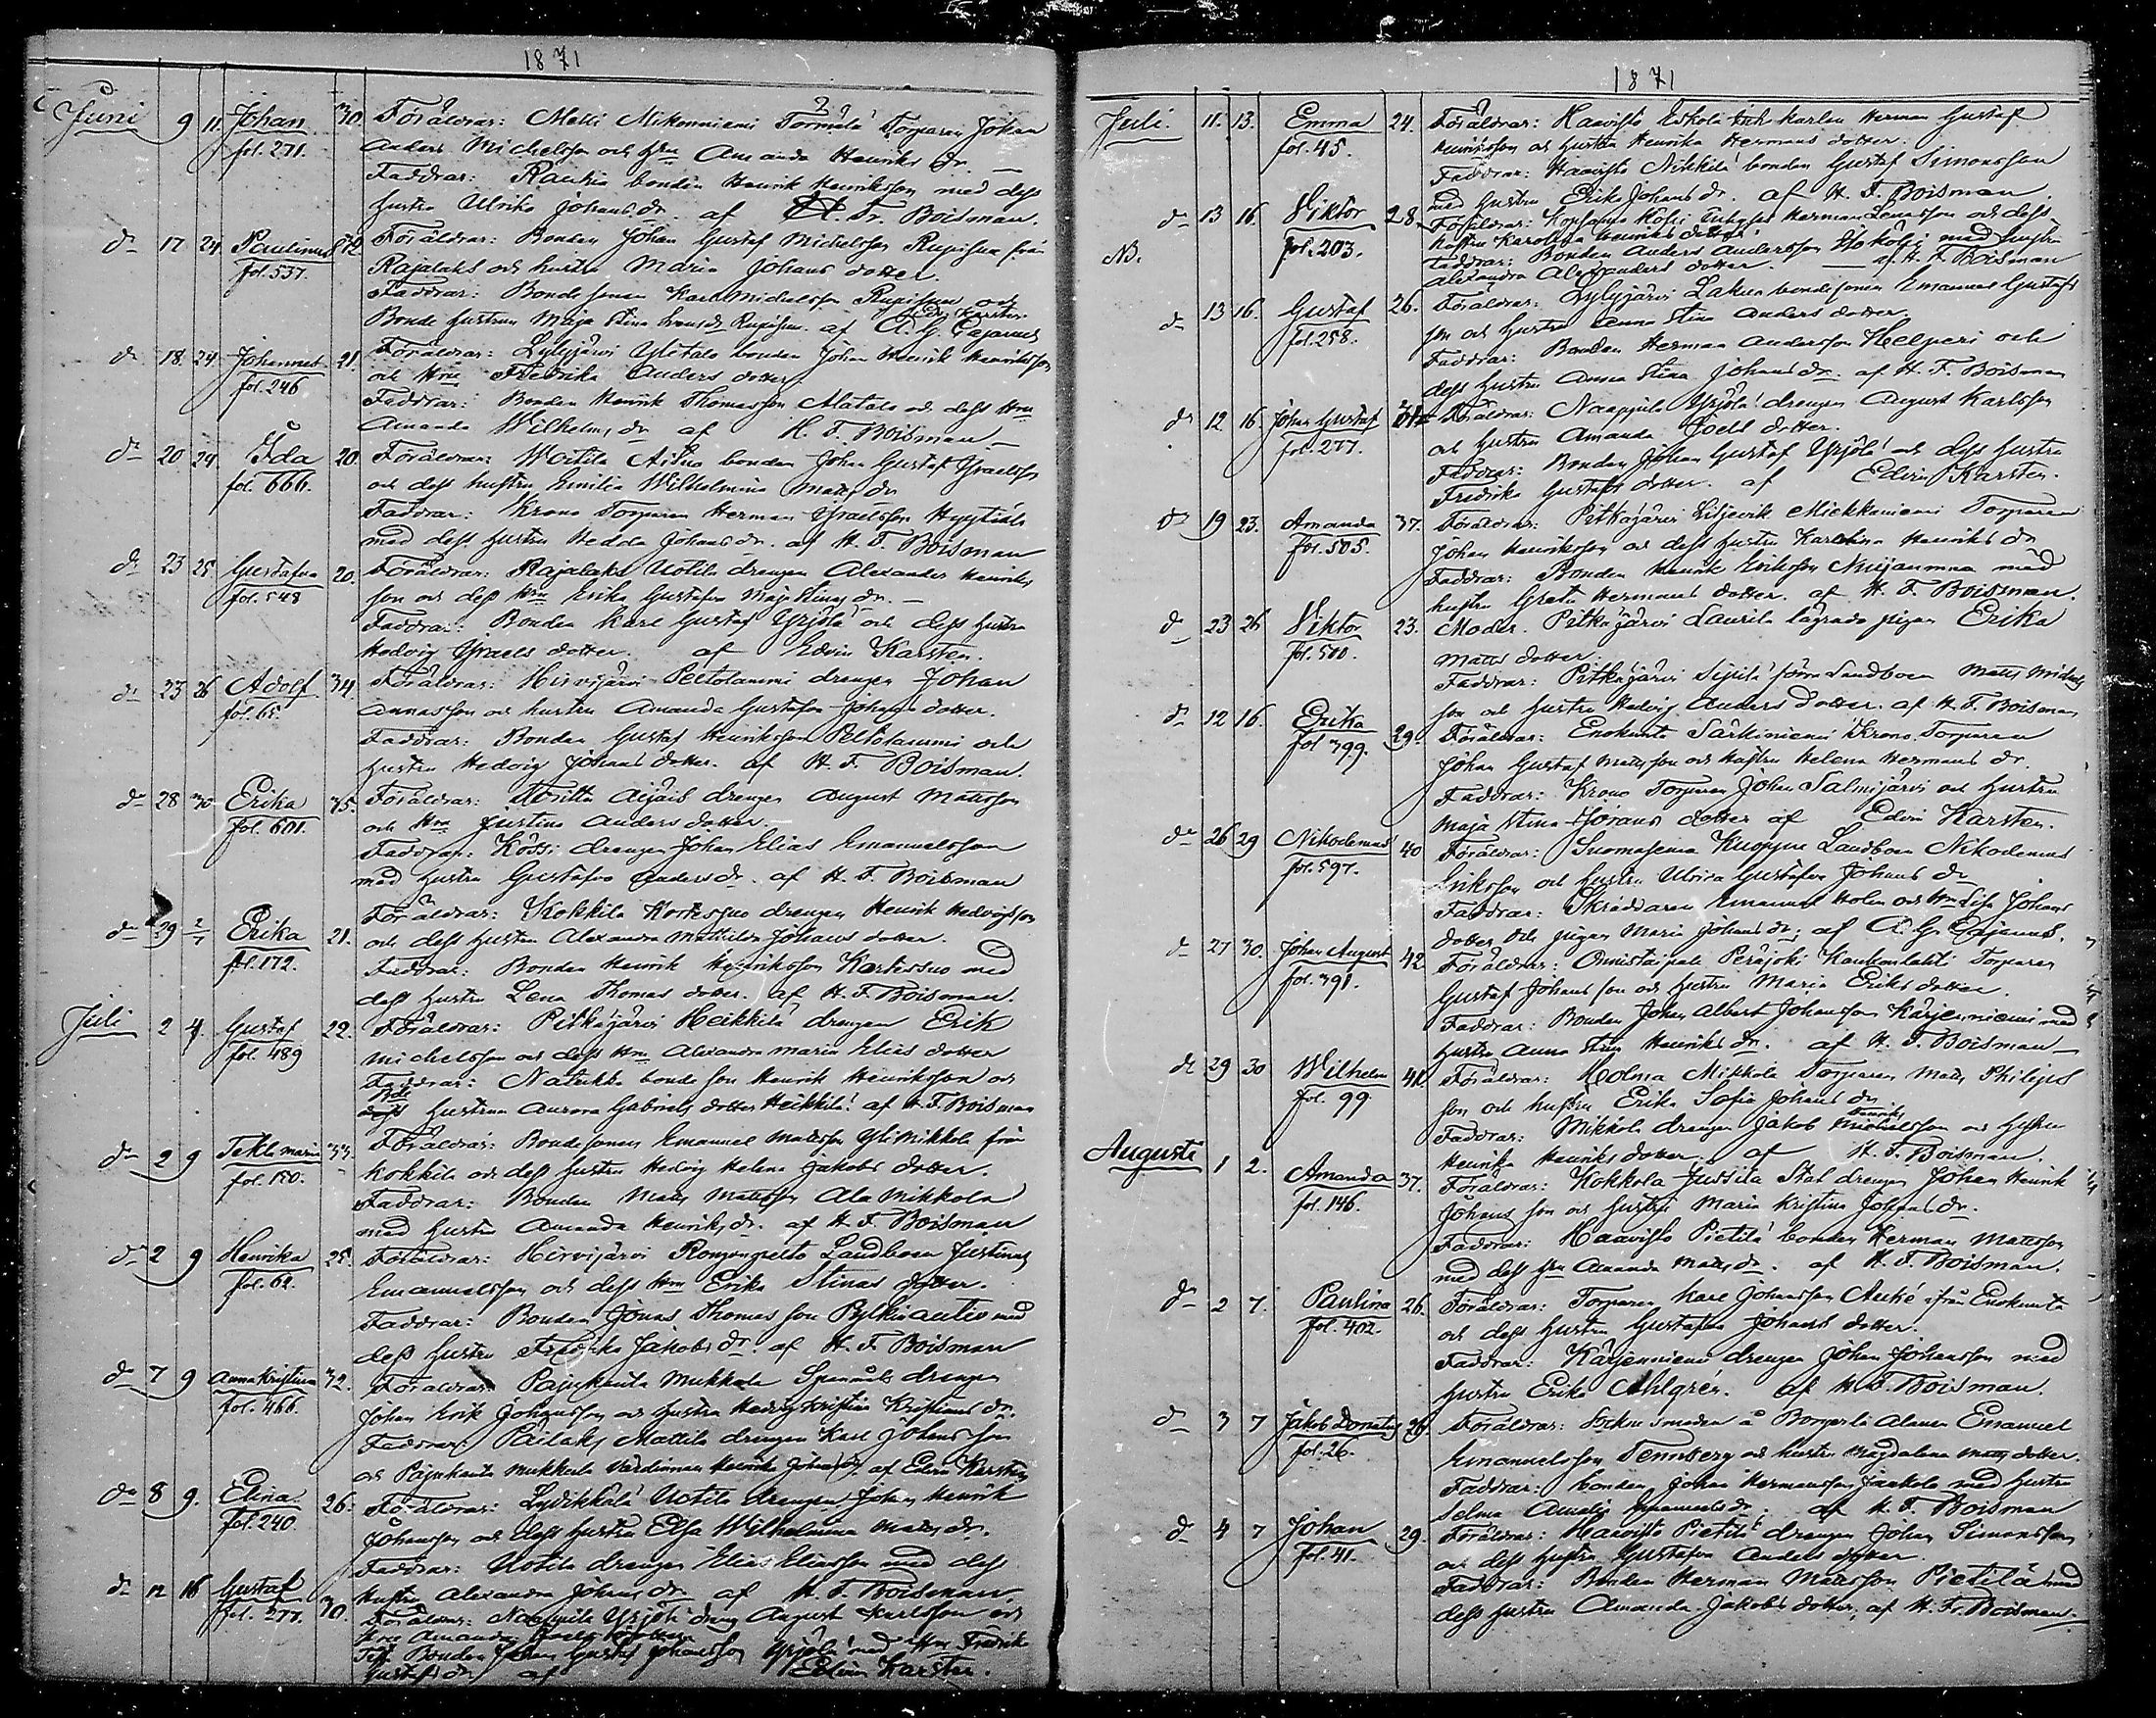 1871
Juni 9 11. Johan 30. Föräldrar: Matti Mikonniemi Tormälä Torparen Johan
fol. 271. Anders Michelsson och Hru Amanda Henriks dr. —
Faddrar: Raukia bonden Henrik Henriksson med dess
hustru Ulrika Johans dr. af H. Fr. Boisman.
do 17 24 Paulinus Föräldrar: Bonden Johan Gustaf Michelsson Rupissa från
fol. 537. Rajalaks och hustru Maria Johans dotter.
Faddrar: Bonde sonen Karl Michelsson och
Bonde hustrun Maja Stina af A. G. Cajanus
do 18. 24. Johannes 21. Föräldrar: Lyly­järvi Ylitalo bonden Johan Henrik Henriksson
fol. 246 och Hru Fredrika Anders dotter
Faddrar: Bonden Henrik Thomasson Matala och dess Hru
Amanda Wilhelms dr af H. F. Boisman —
do 20 24. Ida 20. Föräldrar: Woitila bonden Johan Gustaf Israelsson
fol. 666. och dess hustru Emilia Wilhelmina Matts dr
Faddrar: Krono Torparen Herman Israelsson
med dess hustru Hedda Johans dr. af H. F. Boisman
do 23 25. Gustafva 20. Föräldrar: Rajalaks Uotila drengen Alexander Henriks
fol. 548 son och dess Hru Erika Gustafva Maj Stinas dr. —
Faddrar: Bonden Karl Gustaf Yrjölä och dess hustru
Hedvig Israels dotter. af Edvin Karsten.
do 23 26 Adolf 34 Föräldrar: Hirvijärvi Peltotammi drengen Johan
fol. 65. Annasson och hustru Amanda Gustafva Johans dotter.
Faddrar: Bonden Gustaf Henriksson Peltotammi och
hustru Hedvig Johans dotter. af H. F. Boisman.
do 28 30 Erika 35. Föräldrar: drengen August Mattsson
fol. 601. och Hru Justina Anders dotter. —
Faddrar: drengen Johan Elias Emanuelsson
med hustru Gustafva Anders dr. af H. F. Boisman
do 29 2/7 Erika 21. Föräldrar: Kokkila Kortessuo drengen Henrik Hedvigsson
fol. 172. och dess hustru Alexandra Mathilda Johans dotter.
Faddrar: Bonden Henrik Henriksson Kortessuo med
dess hustru Lena Thomas dotter. af H. F. Boisman.
Juli 2 4. Gustaf 22. Föräldrar: Pitkäjärvi Heikkilä drengen Erik
fol. 489 Michelsson och dess Hru Alexandra Maria Elias dotter
Faddrar: Natukka bonde son Henrik Henriksson och
Bde hustrun Aurora Gabriels dotter Heikkilä. af H. F. Boisman
do 2 9 Tekla Maria 33. Föräldrar: Bondesonen Emanuel Mattsson Yli Mikkola från
fol. 150. Kokkila och dess hustru Hedvig Helena Jakobs dotter.
Faddrar: Bonden Matts Mattsson Ala Mikkola
med hustru Amanda Henriks dr. af H. F. Boisman
do 2 9 Henrika 25. Föräldrar: Hirvijärvi Landboen Justinus
fol. 62. Emanuelsson och dess Hru Erika Stinas dotter.
Faddrar: Bonden Jonas Thomas son med
dess hustru Fredrika Jakobs dr. af H. F. Boisman
do 7 9 Anna Kristina 32. Föräldrar: Pajukanta Mukkala drengen
fol. 466. Johan Erik Johansson och hustru Hedvig Kristina Kristians dr.
Faddrar: Mattila drengen Karl Johans son
och Pajukanta Mukkala Henrika Johans dr. af Edvin Karsten
do 8 9. Elina 26. Föräldrar: Lyvikkälä Uotila drengen Johan Henrik
fol. 240. Johansson och dess hustru Elsa Wilhelmina Matts dr.
Faddrar: Uotila drengen Elias Eliasson med dess
hustru Alexandra Johans dr af H. F. Boisman.
do 12 16 Gustaf 30. Föräldrar: Naappila Yrjölä dreng August Karlsson och
fol. 277. Hru Amanda Joels dotter
Bonden Johan Gustaf Johansson Yrjölä med Hru Fredrika
Gustafs dr af Edvin Karsten.
1871
Juli. 11. 13. Emma 24. Föräldrar: Haavisto Eskola karlen Herman Gustaf
fol. 45. Henriksson och hustru Henrika Hermans dotter.
Faddrar: Haavisto Nikkilä bonden Gustaf Simonsson
med hustru Erika Johans dr. af H. F. Boisman.
do 13 16. Viktor 28. Föräldrar: Herman Lenasson och dess
fol. 203. hustru Karolina Henriks dotter
NB. Faddrar: Bonden Anders Andersson med hustru
Alexandra Alexanders dotter. — af H. F. Boisman
do 13 16. Gustaf 26. Föräldrar: Lylyjärvi bondesonen Emanuel Gustafs
fol. 258. son och hustru Anna Stina Anders dotter.
Faddrar: Bonden Herman Andersson Helperi och
dess hustru Anna Stina Johans dr. af H. F. Boisman
do 12 16 Johan Gustaf Föräldrar: Naappila Yrjölä drengen August Karlsson
fol. 277. och hustru Amanda Joels dotter.
Faddrar: Bonden Johan Gustaf Yrjölä och dess hustru
Fredrika Gustafs dotter. af Edvin Karsten.
do 19 23. Amanda 37. Föräldrar: Pitkäjärvi Miekkaniemi Torparen
fol. 505. Johan Henriksson och dess hustru Karolina Henriks dr
Faddrar: Bonden Henrik Eriksson med
hustru Greta Hermans dotter. af H. F. Boisman.
do 23 26 Viktor 23. Moder. Pitkäjärvi Laurila lägrade pigan Erika
fol. 500. Matts dotter.
Faddrar: Pitkäjärvi Sipilä förra Landboen Matts Michels
son och hustru Hedvig Anders dotter. af H. F. Boisman
do 12 16. Erika 29. Föräldrar: Enokunta Särkiniemi Krono Torparen
fol 399. Johan Gustaf Mattsson och hustru Helena Hermans dr.
Faddrar: Krono Torparen Johan Salmijärvi och hustru
Maja Stina Jörans dotter af Edvin Karsten.
do 26 29 Nikodemus 40 Föräldrar: Suomasema Landboen Nikodemus
fol. 597. Eriksson och hustru Ulrica Gustafva Johans dr
Faddrar: Skräddaren Emanuel Holm och Hru Lisa Johans
dotter, och pigan Maria Johans dr; af A. G. Cajanus.
do 27 30. Johan August 42 Föräldrar: Onnistaipale Peräjoki Kaukonlahti Torparen
fol. 391. Gustaf Johans son och hustru Maria Eriks dotter.
Faddrar: Bonden Johan Albert Johansson Kärjenniemi med
hustru Anna Stina Henriks dr. af H. F. Boisman —
do 29 30 Wilhelm 41. Föräldrar: Holma Mikkola Torparen Matts Philips
fol. 99 son och hustru Erika Sofia Johans dr
Faddrar: Mikkola drengen Jakob Henriksson och hustru
Henrika Henriks dotter. af H. F. Boisman.
Augusti 1 2. Amanda 37. Föräldrar: Kokkola Jussila Stal drengen Johan Henrik
fol. 146. Johans son och hustru Maria Kristina Johans dr.
Faddrar: Haavisto Pietilä bonden Herman Mattsson
med dess hru Amanda Matts dr. af H. F. Boisman.
do 2 7. Paulina 26. Föräldrar: Torparen Karl Johansson Anké ifrån Enokunta
fol. 402. och dess hustru Gustafva Johans dotter.
Faddrar: Kärjenniemi drengen Johan Johansson med
hustru Erika Ahlgrén. af H. F. Boisman.
do 3 7 Jakob Donatus 26. Föräldrar: Socknesmeden å Emanuel
fol. 26. Emanuelsson Tennberg och hustru Magdalena Matts dotter.
Faddrar: bonden Johan Hermansson Jaakola med hustru
Selma Amalia Emanuels dr. af H. F. Boisman
do 4 7 Johan 29. Föräldrar: Haavisto Pietilä drengen Johan Simonsson
fol. 41. och dess hustru Gustafva Anders dotter.
Faddrar: Bonden Herman Mattsson Pietilä med
dess hustru Amanda Jakobs dotter, af H. Fr. Boisman.